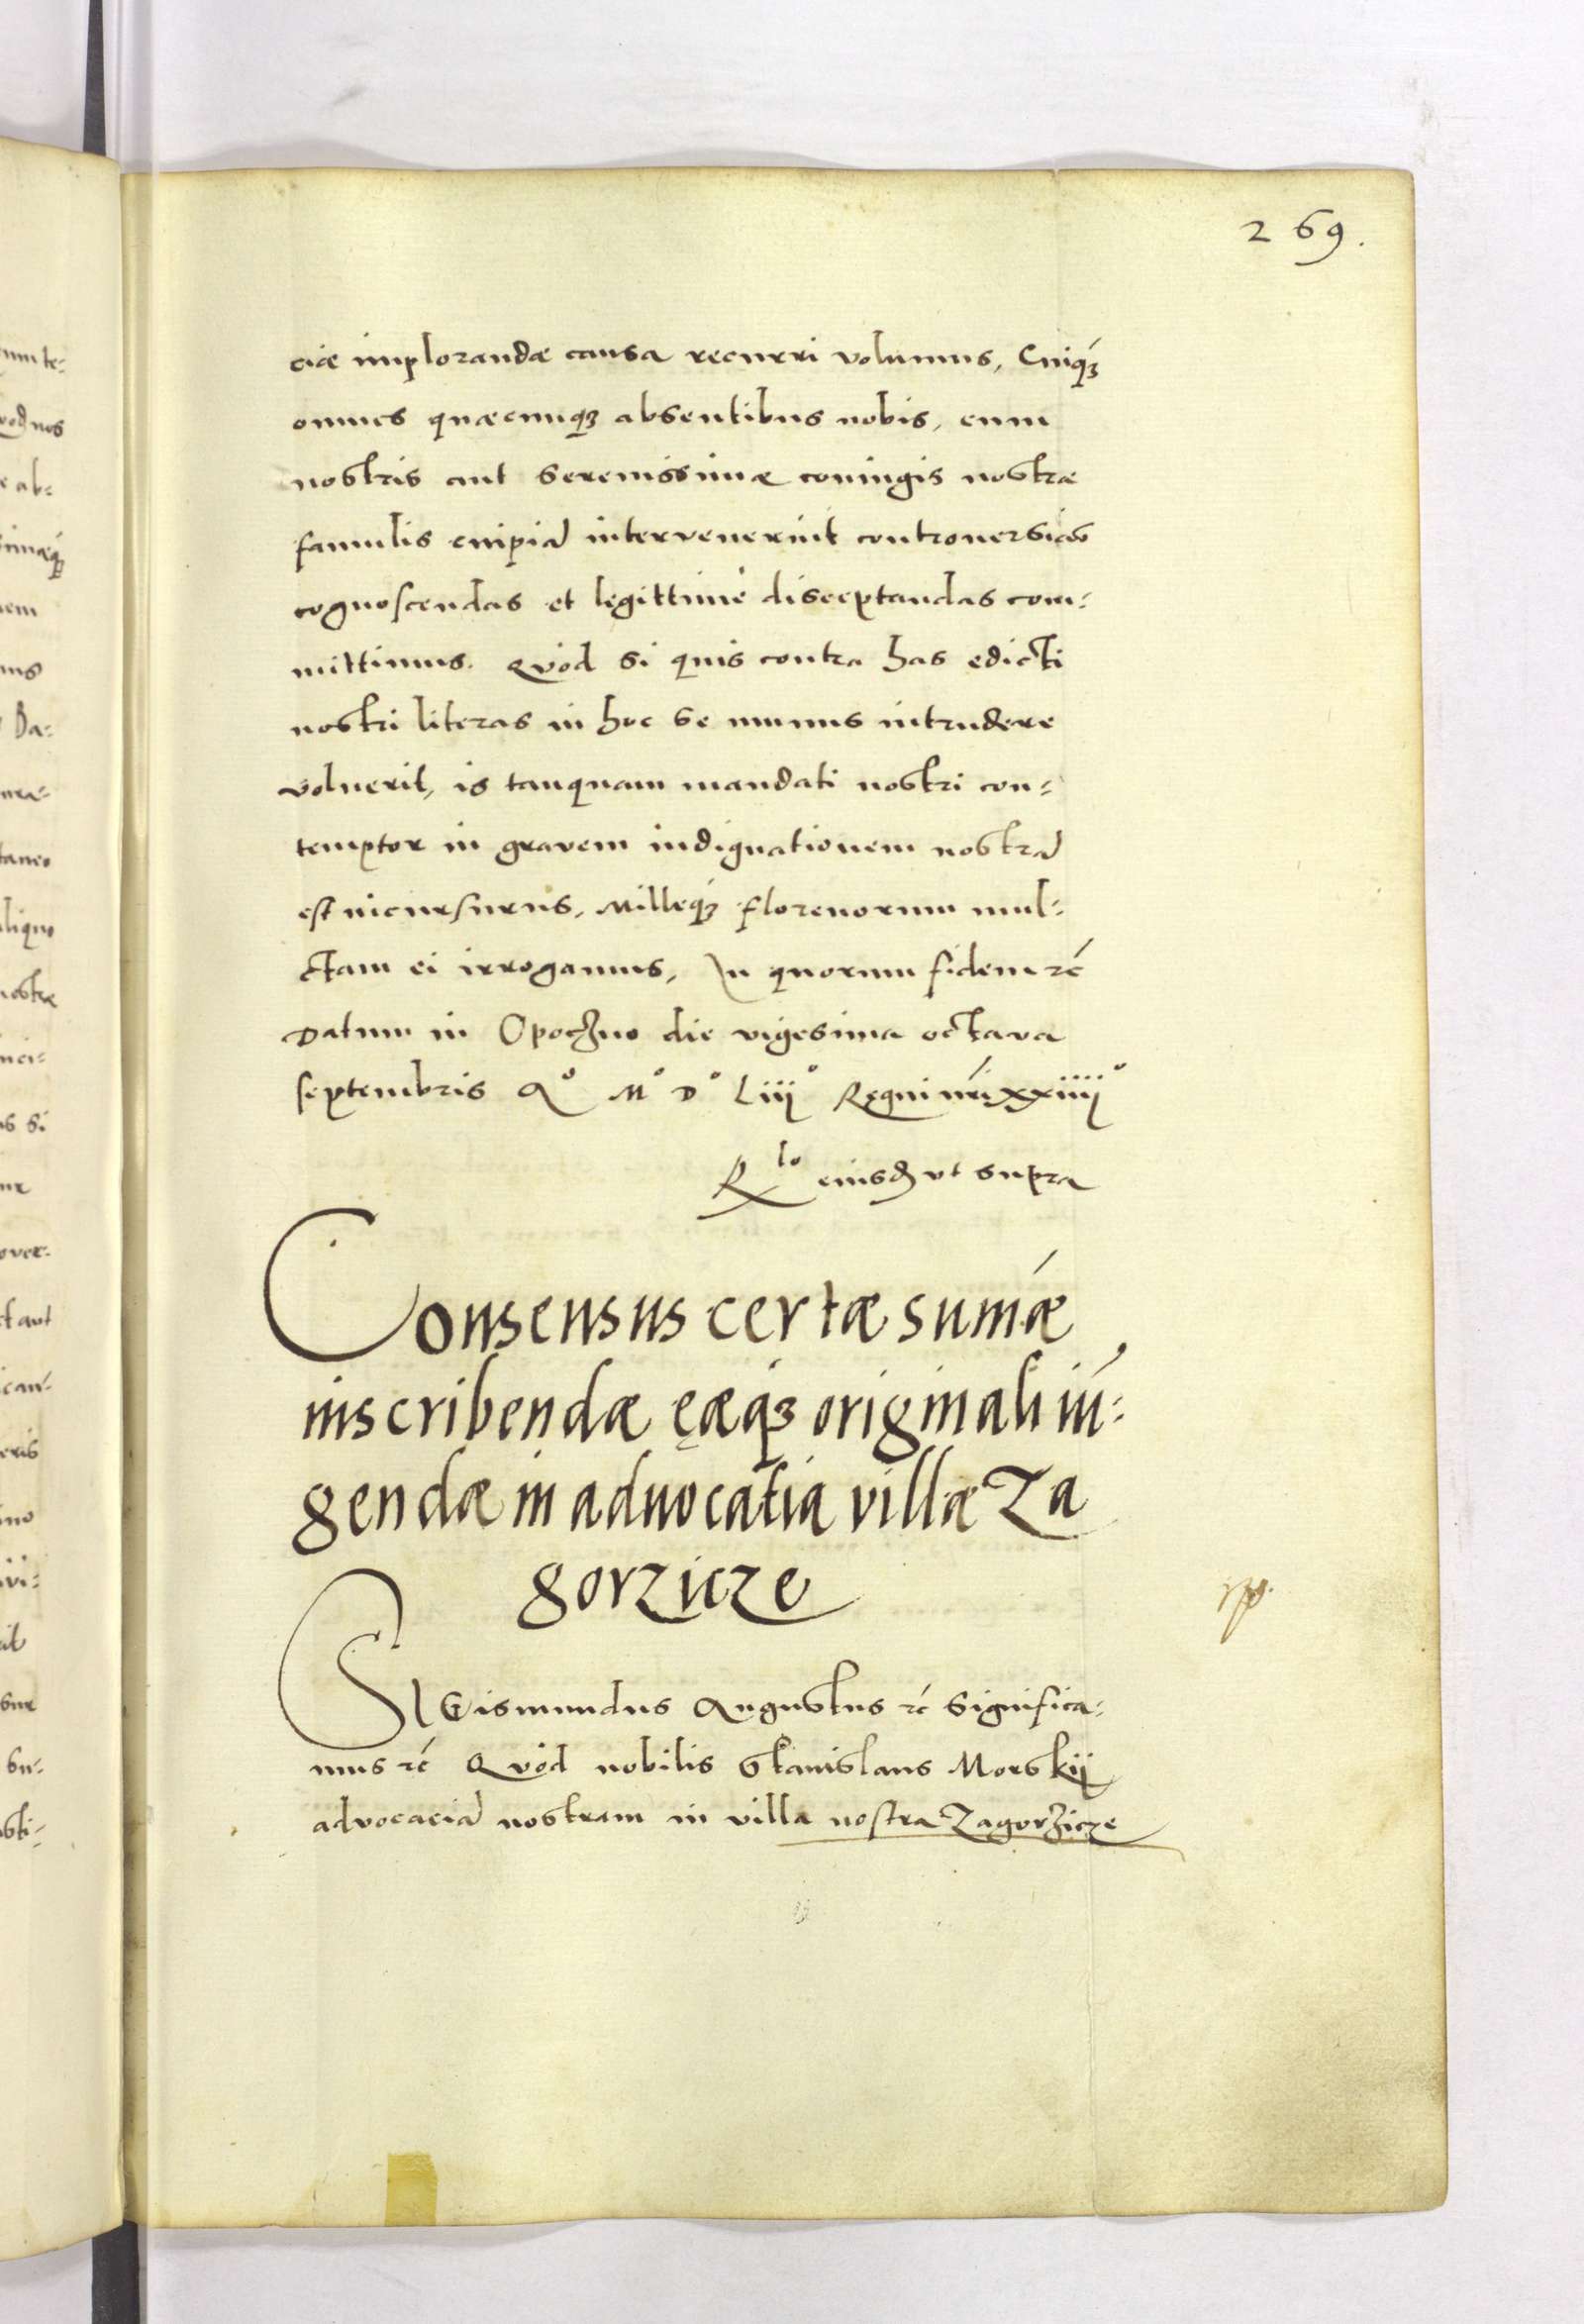 269.
ciæ implorandæ causa recurri volumus, Cuiq́ꝫ
omnes quæcunqꝫ absentibus nobis, cum
nostris aut Serenissimæ coniugis nostræ
famulis cuipiã intervenerint controuersias
cognoscendas et legittimè disceptandas com-
mittimus. Quòd si quis contra has edicti
nostri literas in hoc se munus intrudere
voluerit, is tanquam mandati nostri con-
temptor in gravem indignationem nostrã
est incursurus, Milleq́ꝫ florenorum mul-
ctam ei irrogamus, In quorum fidem ꝛc̃
Datum in Opoczno die vigesima octava
septembris Aº Mº Dº Liijº Regni nr̃i xxiiijº
Rlo eiusdꝫ ut supra
Consensus certæ sum̃æ
inscribendæ ęæq́ꝫ originali iũ-
gendæ in aduocatia villæ Za
gorzicze
SIGismundus Augustus ꝛc̃ Significa-
mus ꝛc̃ Quòd nobilis Stanislaus Morskij
advocaciã nostram in villa nostra Zagorzicze